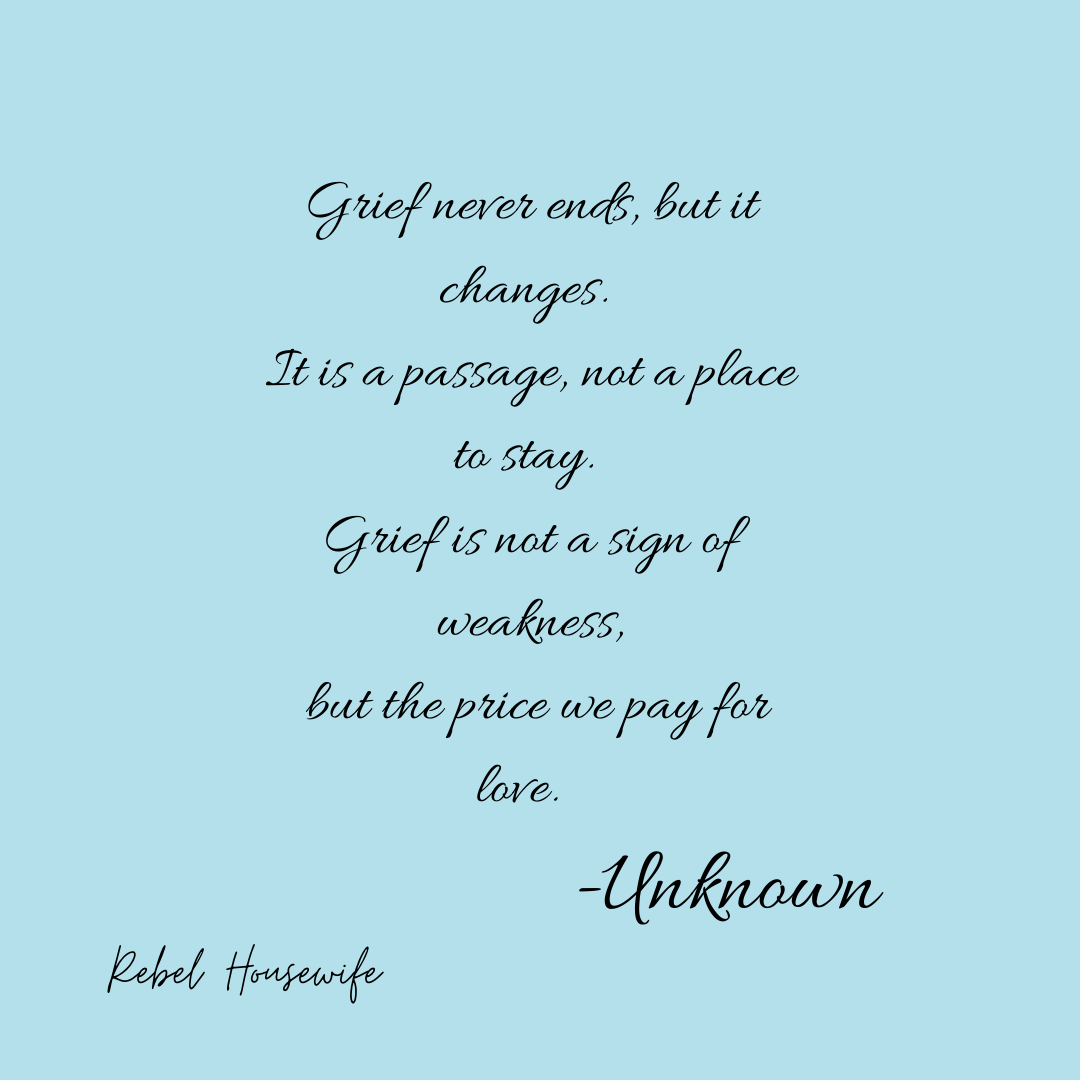 Grief never ends, but it
changes.
It is a passage, not a place
to stay.
Grief is not a sign of
weakness,
but the price we pay for
love.
-Unknown
Rebel Housewife